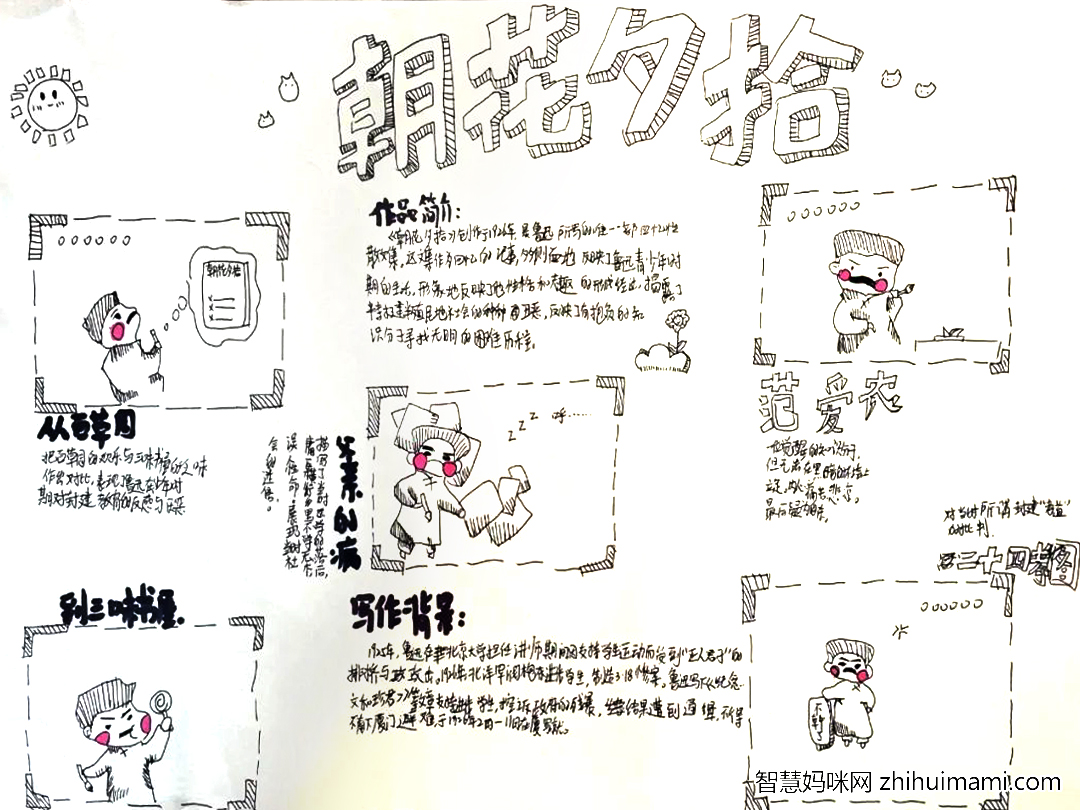 朝花夕拾
作品简介:
《朝花夕拾》创作于1926年,是鲁迅所写的唯一一部回忆性
散文集,这文集作为回忆的记事,多侧面地反映了鲁迅青少年时
期的生活,形象地反映了他性格和志趣的形成经过,揭露了
半封建半殖民地社会的种种丑恶,反映了有抱负的知
识分子寻找光明的困难历程。
朝花夕拾
从百草园
把百草园的欢乐与三味书屋的乏味
作出对比,表现了鲁迅在少年时
期对封建教育的反感与
到三味书屋.
父亲的病
描写了当时医学的落后,
庸医
误人性命,
会的迷信。
z z z 呼……
范爱农
但无法在黑暗的社会上
立足,内心痛苦悲凉,
最后
对当时所谓封建
的批判.
二十四孝图
写作背景:
1925年,鲁迅在北京大学担任讲师期间因支持学生运动而受到“正人君子”的
排挤与攻击。1926年北洋军阀枪杀进步学生,制造3·18惨案。鲁迅写下《纪念
刘和珍君》等文章支持进步学生,控诉政府的残暴,结果遭到通缉,不得
不南下厦门避难
智慧妈咪网 zhihuimami.com